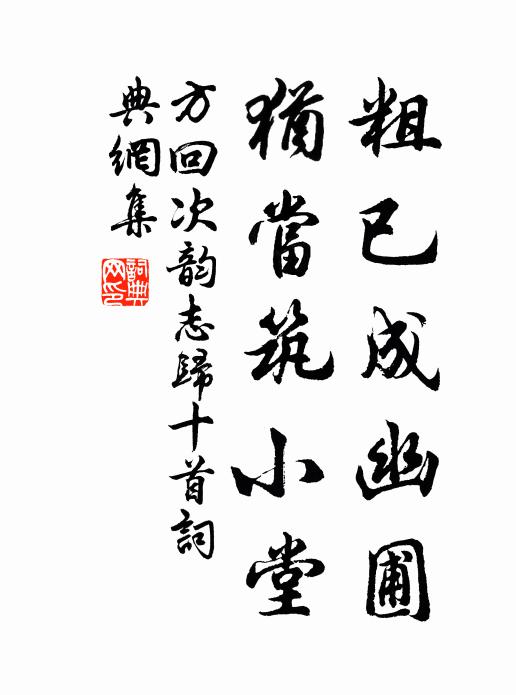 粗已成幽圃
猶當筑小堂
方回次韵志歸十首詞
典網集
詞典
网印